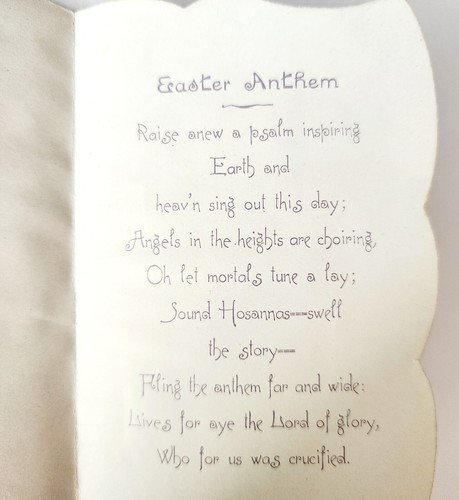 Easter Anthem
Raise anew a psalm inspiring
Earth and
heav'n sing out this day;
Angels in the heights are choiring,
Oh let mortals tune a lay;
Sound Hosannas---swell
the story---
Fling the anthem far and wide:
Lives for aye the Lord of glory,
Who for us was crucified.